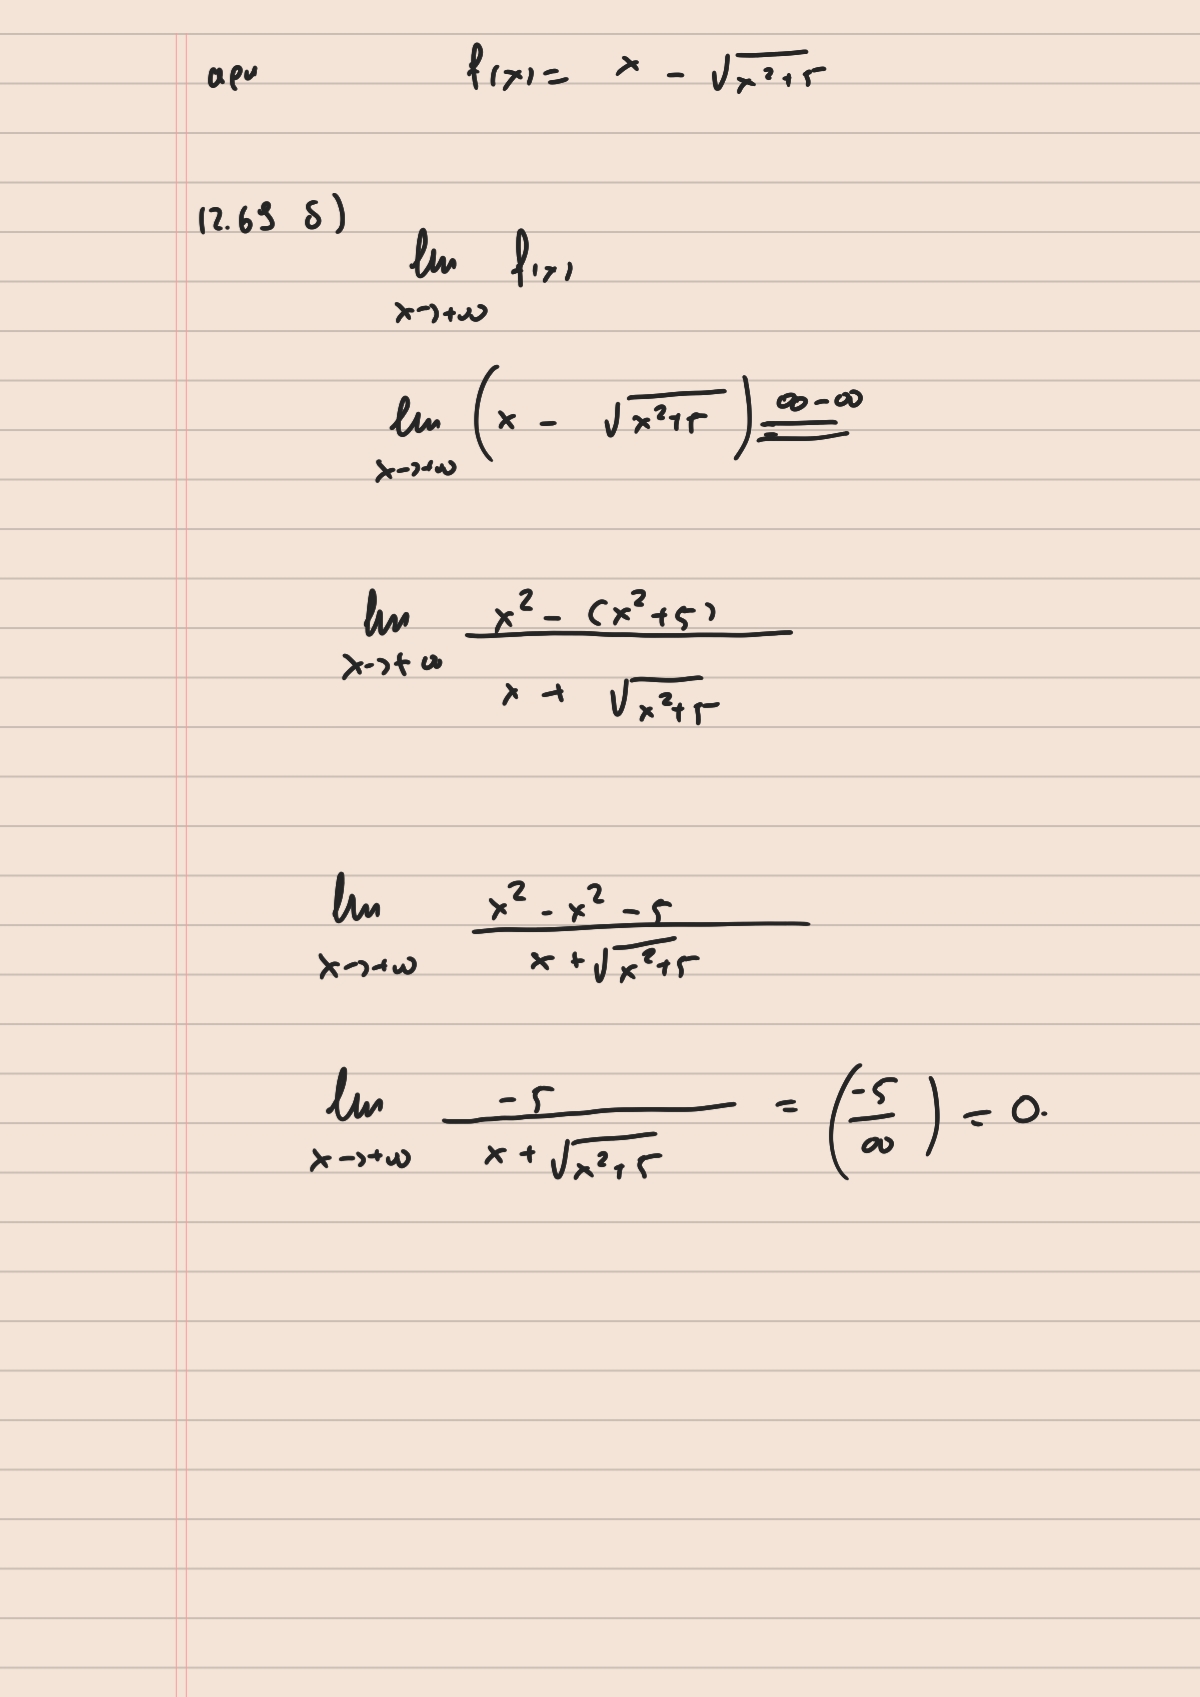 αρα f(x) = x - √(x²+5)
12.69 δ)
lim f(x)
x→+∞
lim (x - √(x²+5)) ∞-∞ =
x→+∞
lim (x² - (x²+5)) / (x + √(x²+5))
x→+∞
lim (x² - x² - 5) / (x + √(x²+5))
x→+∞
lim -5 / (x + √(x²+5)) = (-5/∞) = 0.
x→+∞